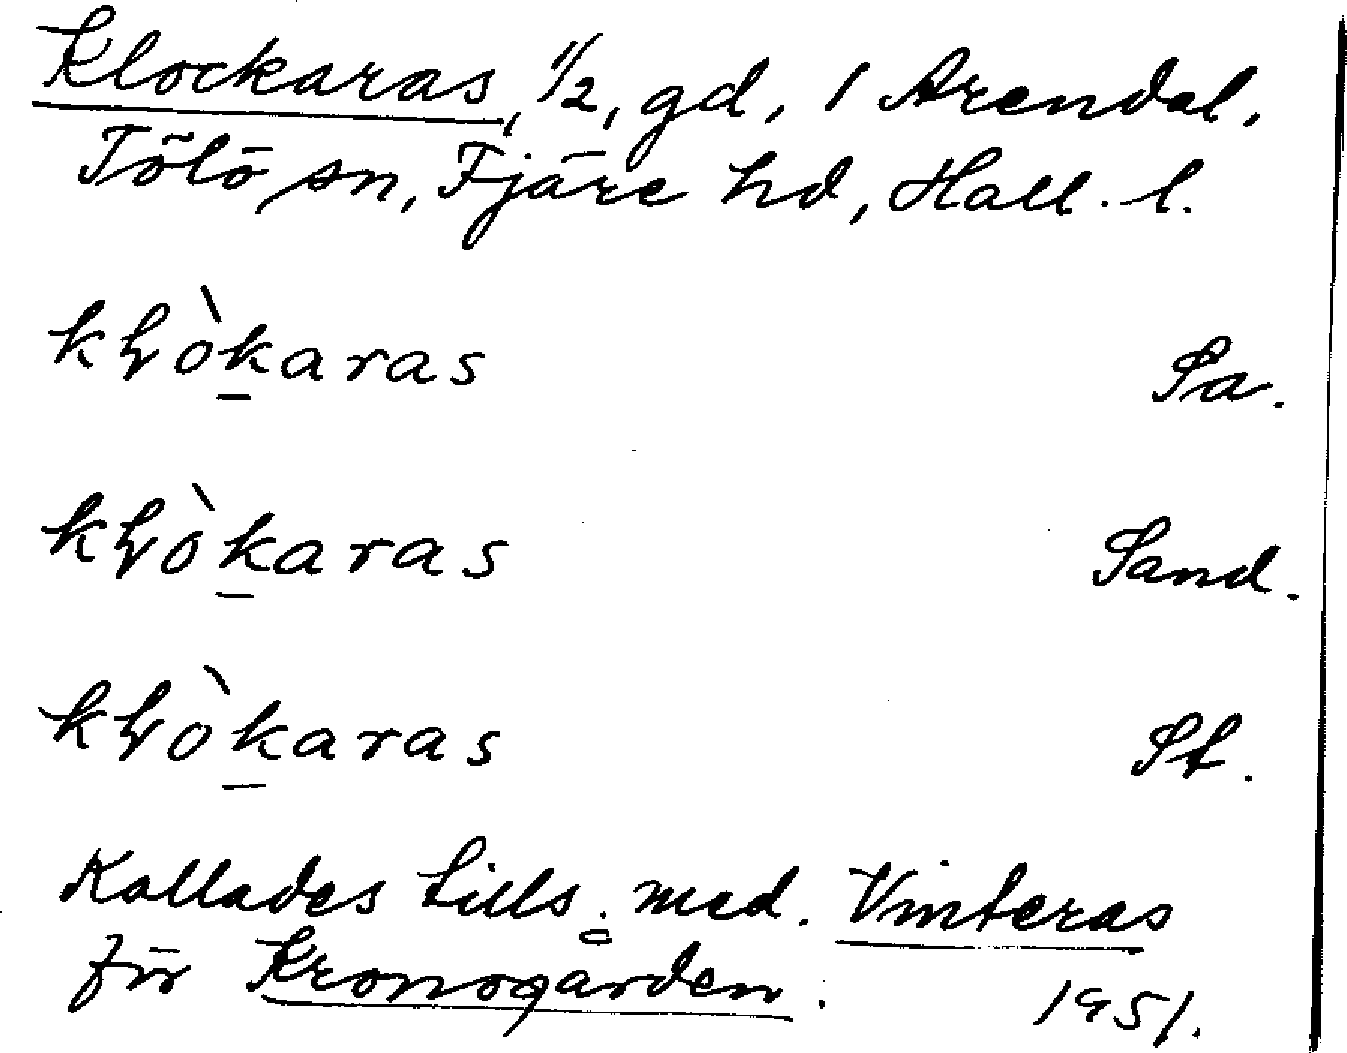 Klockaras, 1/2, gd, 1 Arendal,
Tölö sn, Fjäre hd, Hall. l.
kɫòk̲aras Sa.
kɫòk̲aras Sand.
kɫòk̲aras St.
Kallades tills. med. Vinteras
för Kronogården. 1951.